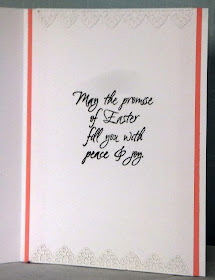 May the promise
of Easter
fill you with
peace & joy.